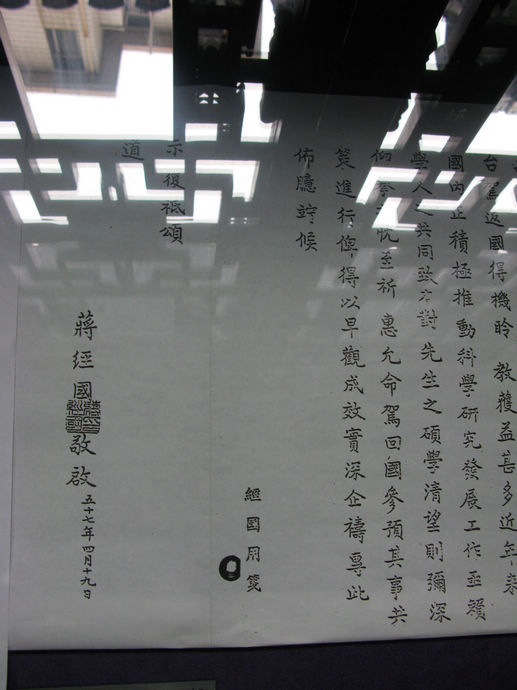 台駕返國得機聆 教獲益甚多近年來
國內正積極推動科學研究發展工作亟賴
學人之共同致力對 先生之碩學清望則彌深
至祈 惠允命駕回國參預其事共
策進行俾得以早觀成效實深企禱專此
佈臆竚候
示復祗頌
道
蔣經國 敬啟 五十七年四月十九日
經國用箋